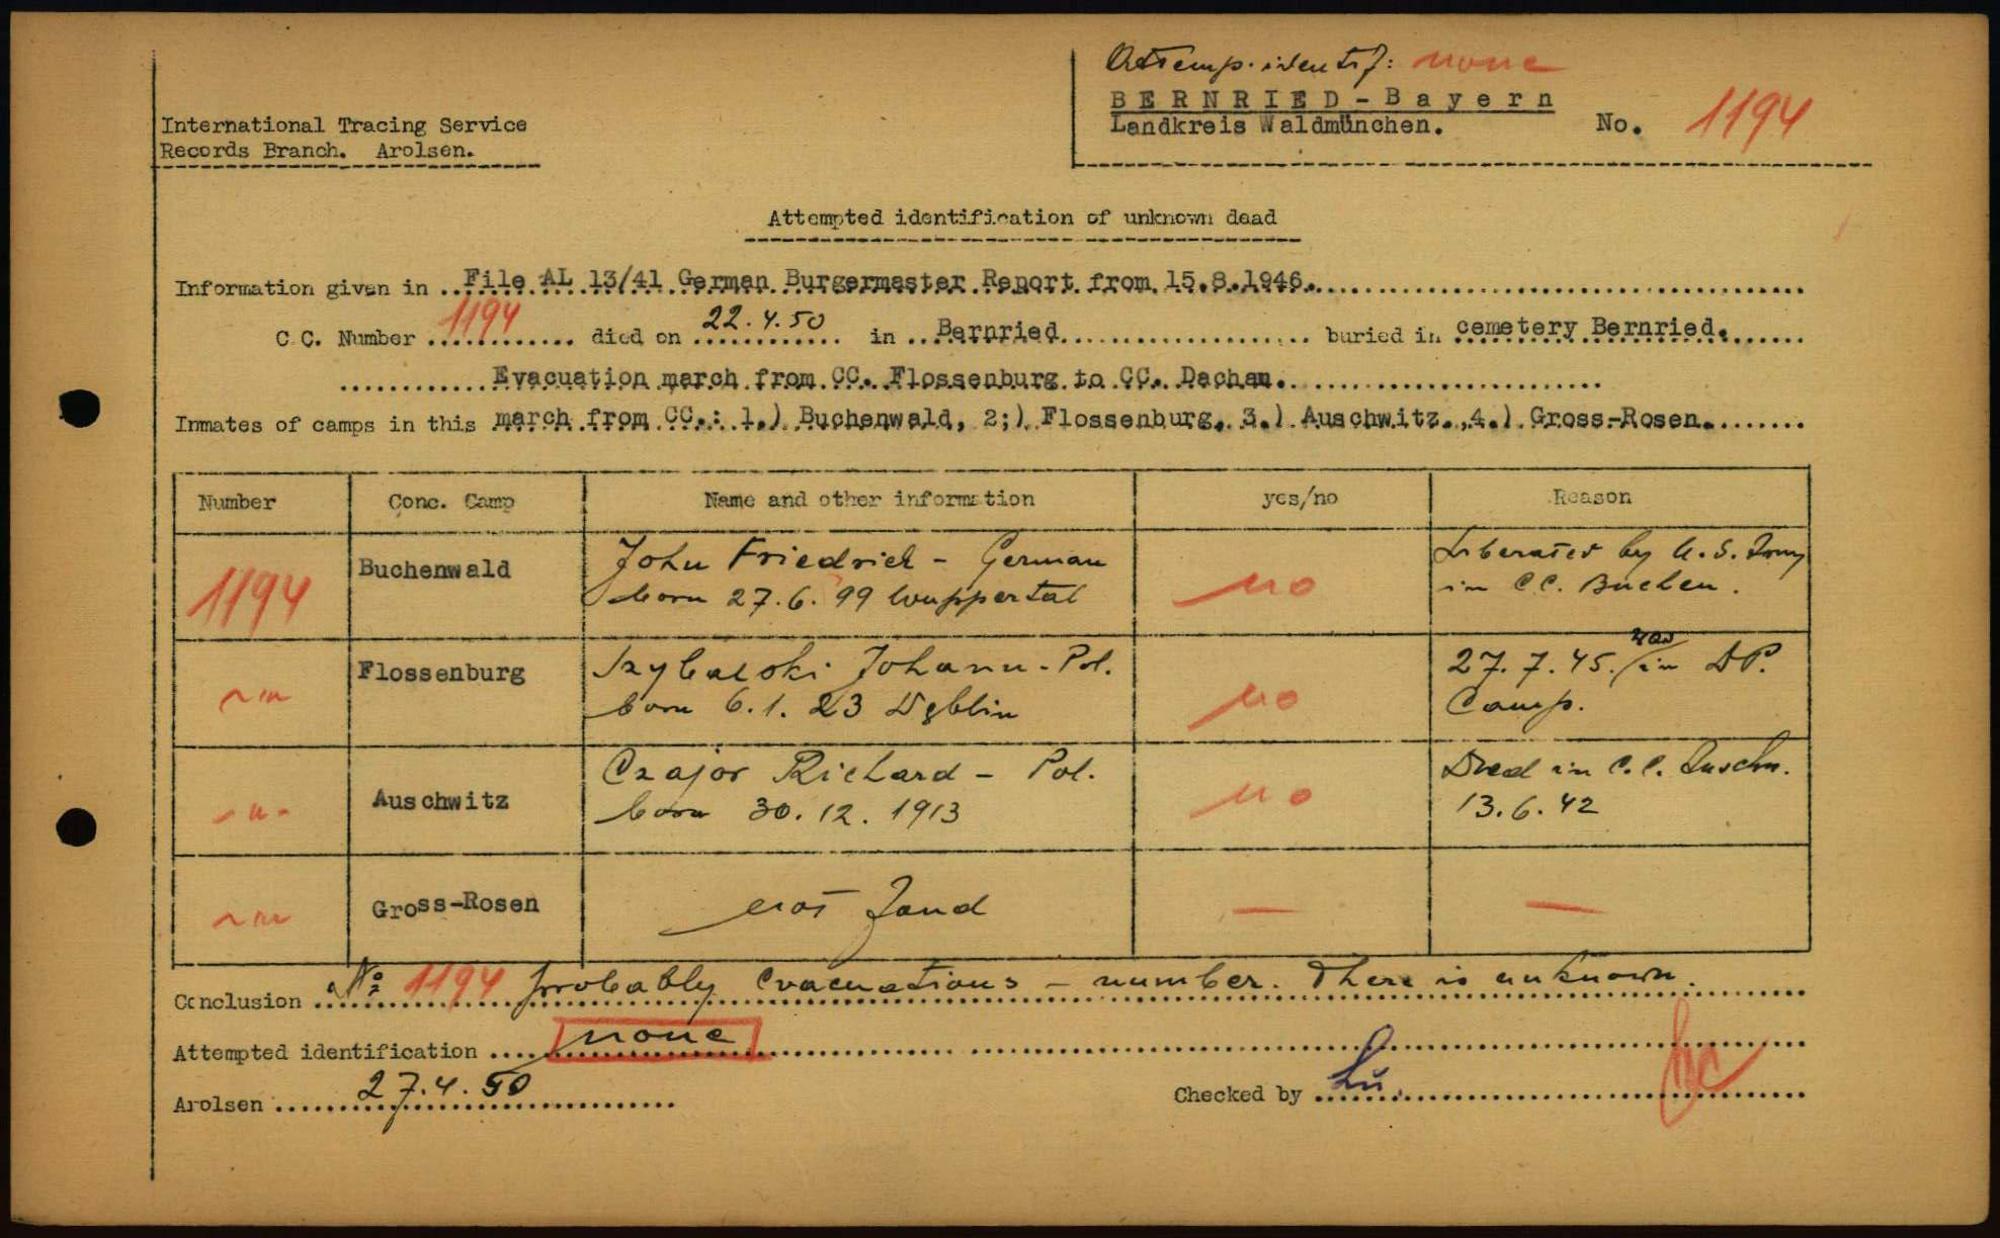 Attemp. identif: none
BERNRIED-Bayern
Landkreis Waldmünchen. No. 1194
International Tracing Service
Records Branch. Arolsen.
Attempted identification of unknown dead
Information given in File AL 13/41 German Burgermaster Report from 15.8.1946.
C.C. Number 1194 died on 22.4.50 in Bernried buried in cemetery Bernried.
Evacuation march from CC. Flossenburg to CC. Dachau.
Inmates of camps in this march from CC.: 1.) Buchenwald, 2;) Flossenburg, 3.) Auschwitz.,4.) Gross-Rosen.
Number Conc. Camp Name and other information yes/no Reason
1194 Buchenwald John Friedrich - German no Liberated by U.S. Army
born 27.6.99 Wuppertal in CC. Buchen.
-"- Flossenburg Szybalski Johann - Pol. no 27.7.45. was in DP.
born 6.1.23 Dęblin Camp.
-"- Auschwitz Czajor Richard - Pol. no Died in C.C. Auschw.
born 30.12.1913 13.6.42
-"- Gross-Rosen not - -
Conclusion No 1194 probably evacuations - number. There is unknown.
Attempted identification none
Arolsen 27.4.50 Checked by Lü.